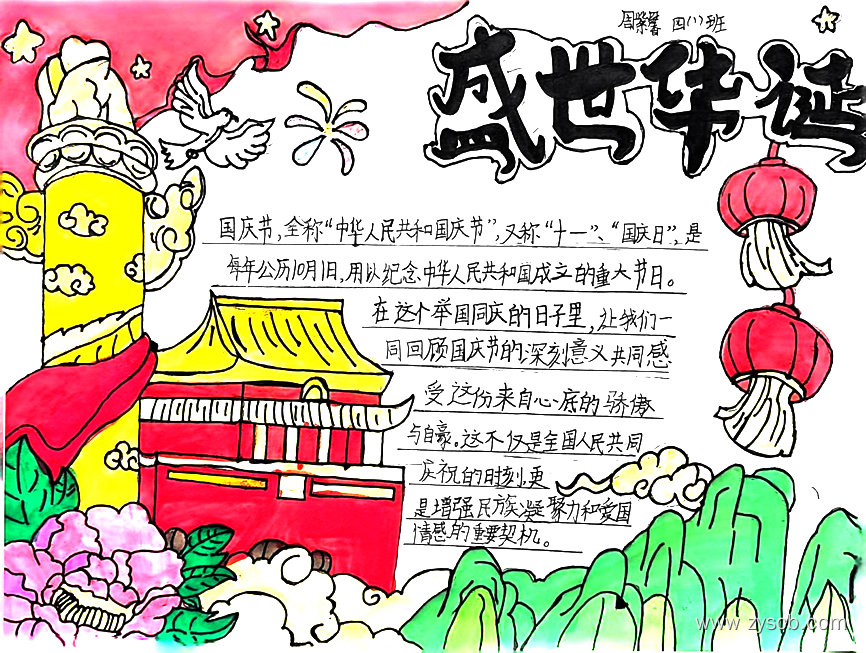 四(1)班
盛世华诞
国庆节,全称“中华人民共和国庆节”,又称“十一”、“国庆日”,是
每年公历10月1日,用以纪念中华人民共和国成立的重大节日。
在这个举国同庆的日子里,让我们一
同回顾国庆节的深刻意义共同感
受这份来自心底的骄傲
与自豪。这不仅是全国人民共同
庆祝的时刻,更
是增强民族凝聚力和爱国
情感的重要契机。
www.zyscb.com